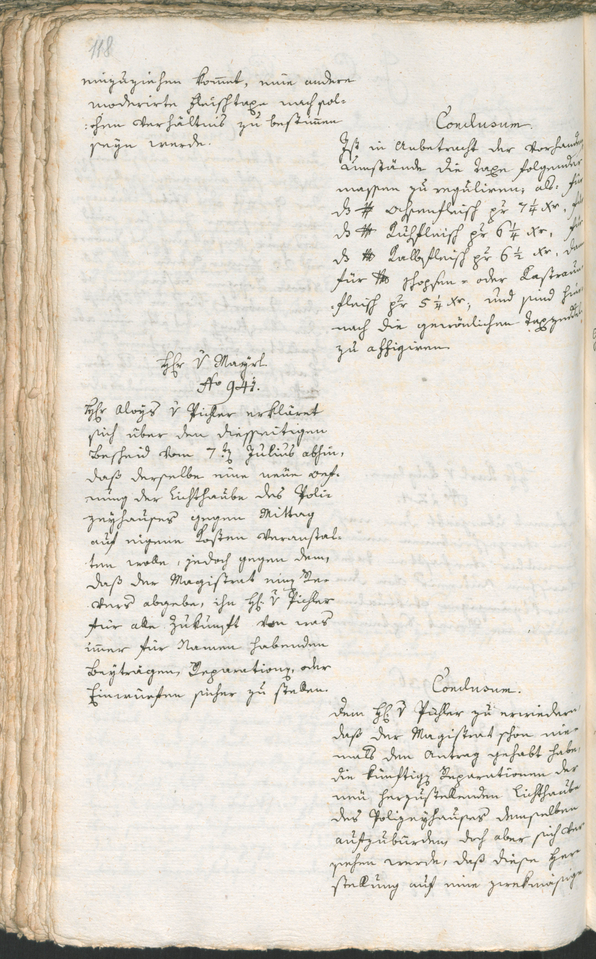 118
einzuziehen kommt, eine andere
moderirte Fleischtaxe nach sol-
chem Verhältnis zu bestimmen
seyn werde.
Conclusum.
Ist in Anbetracht der vorhanden
Umstände die Taxe folgender
massen zu reguliren, als: für
das ℔ Ochsenfleisch pr 7¼ xr, für
das ℔ Kuhfleisch pr 6¼ xr, für
das ℔ Kalbfleisch pr 6½ xr, dan
für ℔ Schöpsen- oder Kastraun
fleisch pr 5¼ xr; und sind hier
nach die gewönlichen Taxzedel
zu affigiren.
Hr v Mayrl
No 941.
Hr Aloys v Pichler erkläret
sich über den diesseitigen
Bescheid vom 7ten Julius abhin,
daß derselbe eine neue Oef-
nung der Lichthaube des Poli-
zeyhauses gegen Mittag
auf eigene Kosten veranstal-
ten wolle, jedoch gegen dem,
daß der Magistrat einen Re-
vers abgebe, ihn Hr v Pichler
für alle Zukunft von was
immer für Namen habenden
Beyträgen, Reparationen, oder
Einwürfen sicher zu stellen.
Conclusum.
Dem Hr v Pichler zu erwiedern
daß der Magistrat schon nie-
mals den Antrag gehabt habe,
die künftigen Reparationen der
neu herzustellenden Lichthaube
des Polizeyhauses demselben
aufzubürden, doch aber sich ver
sehen werde, daß diese Her-
stellung auf eine zwekmäsige